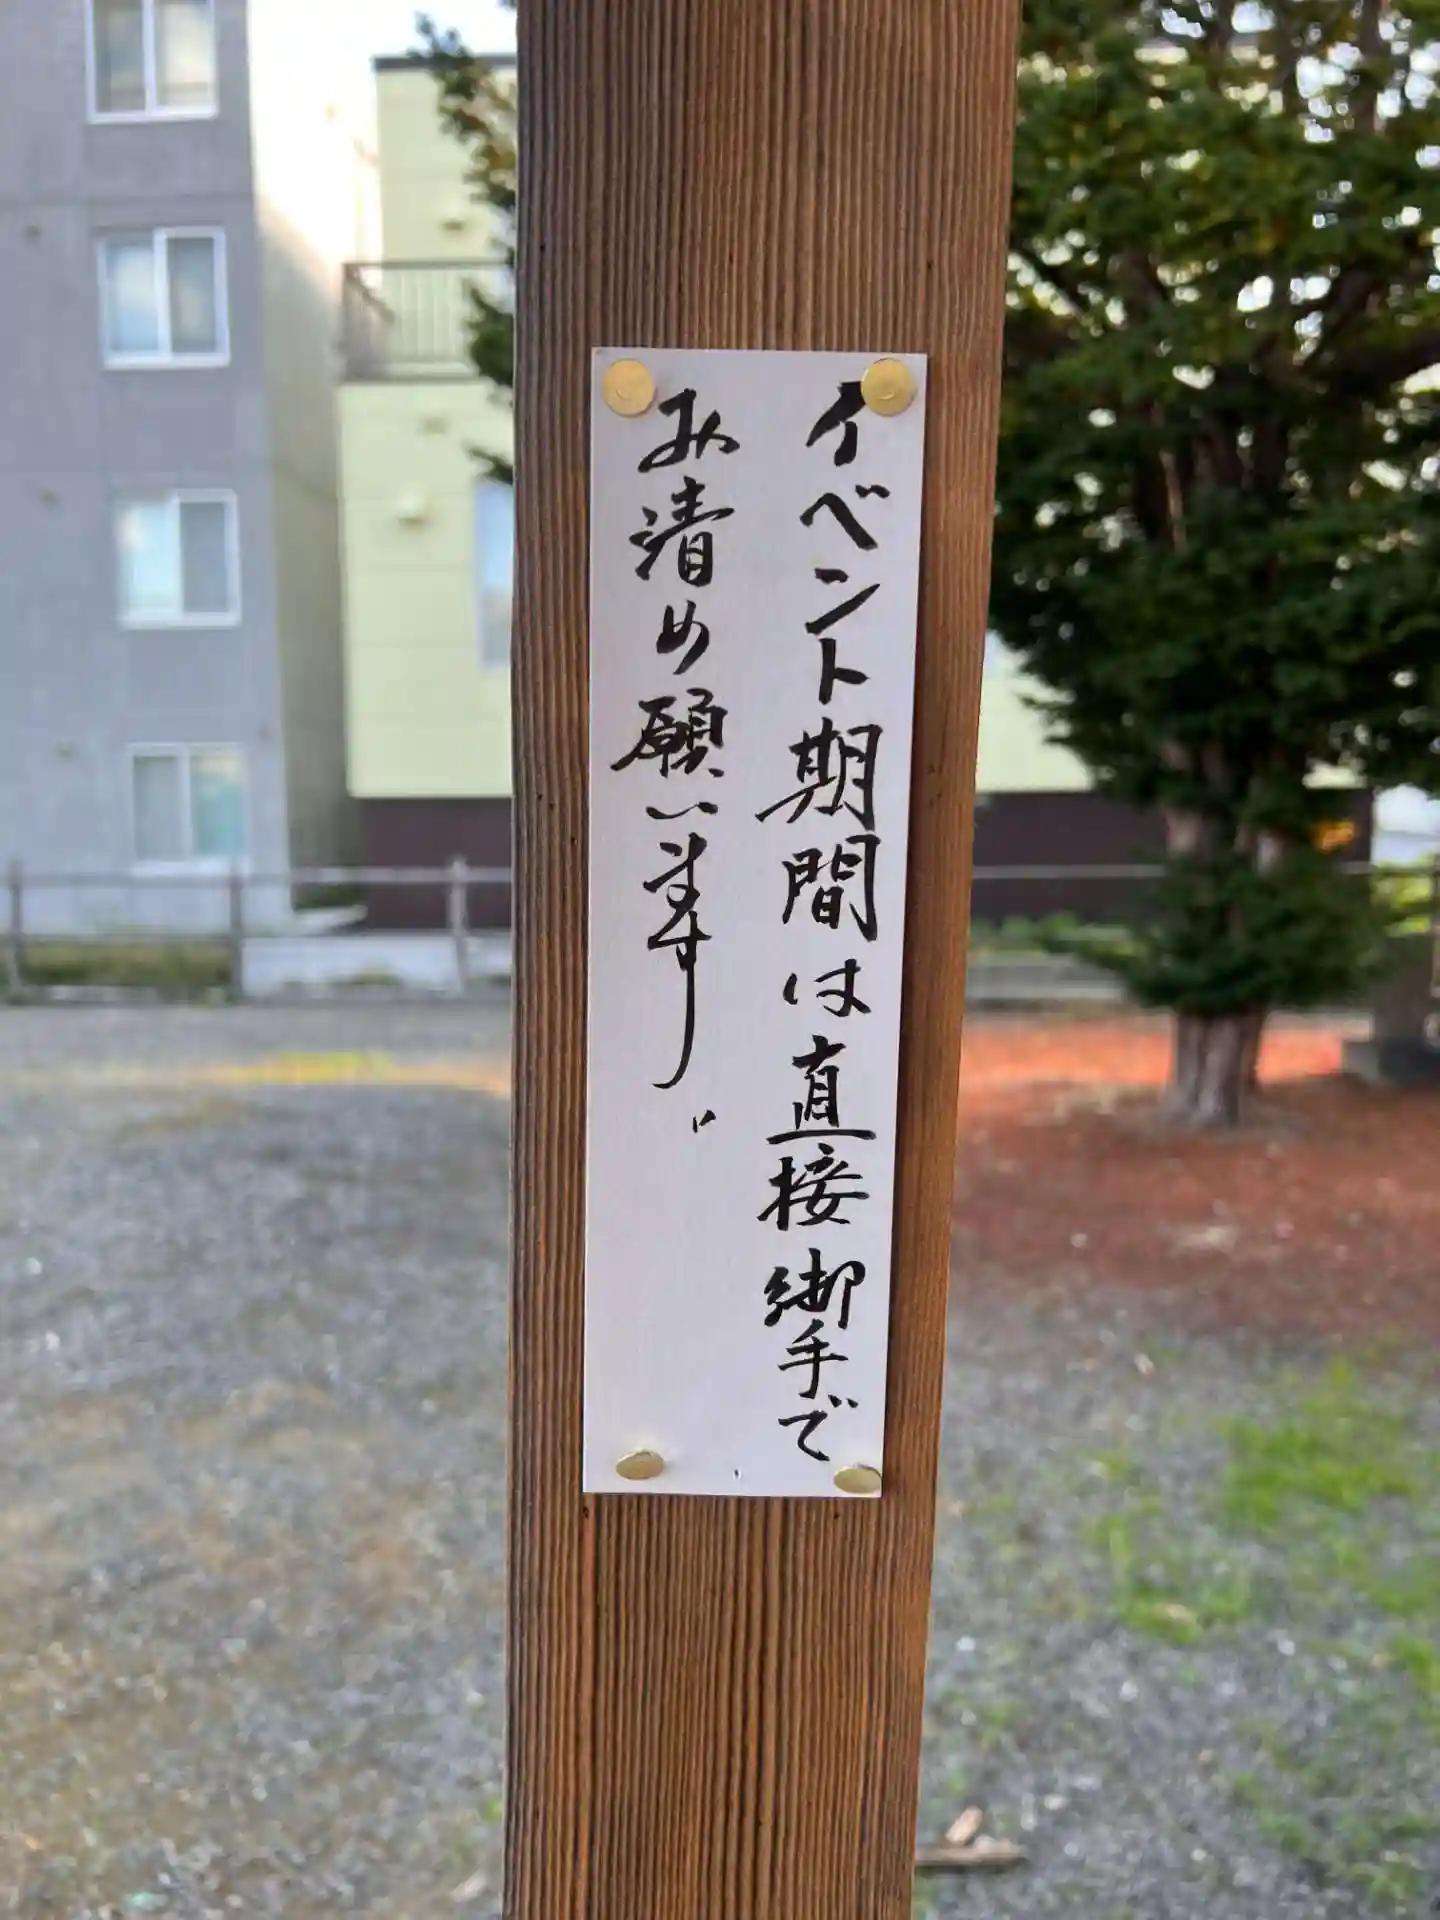 イベント期間は直接御手で
お清め願います。